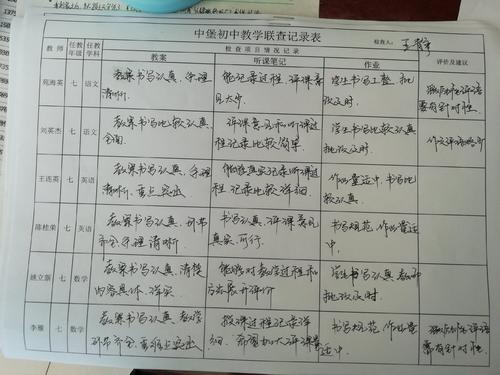 中堡初中教学联查记录表
检查人：
教师 任教年级 任教学科 检查项目情况记录 评价及建议
教案 听课笔记 作业
苑海英 七 语文 教案书写认真，条理 能记录过程，评课意 学生书写工整，批
清晰。 见太少 改及时。 要有针对性。
刘英杰 七 语文 教案书写比较认真， 评课意见和听课过 学生书写比较认真
全面 程记录比较简单 批改及时。
王连英 七 英语 教案书写认真，条理 能够真实记录听课过 作业量适中，书写比
清晰，重点突出 程记录比较详细 较认真。
陈桂荣 七 英语 教案书写认真，环节 书写认真，评课意见 书写规范，作业量适
齐全，条理清晰 真实，可行。 中。
姚立新 七 数学 教案书写认真，清楚 能够对教学过程和 学生书写认真 教师
内容具体、详实 批改及时。
李雅 七 数学 教案书写认真，教学 授课过程记录详 书写规范，作业量
环节齐全，重难点突出 细，希望加大评课量 适中。 要有针对性